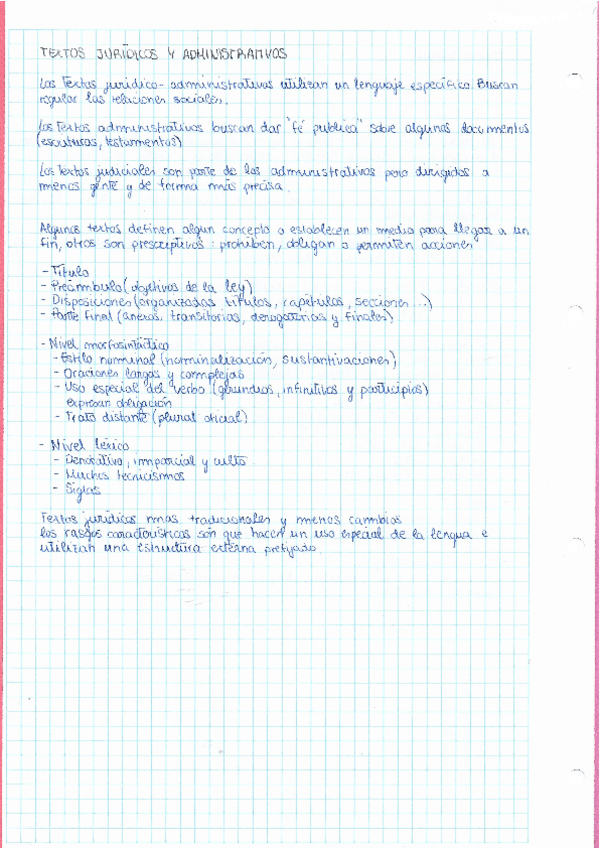 TEXTOS JURÍDICOS Y ADMINISTRATIVOS
Los Textos jurídico-administrativos utilizan un lenguaje específico. Buscan
regular las relaciones sociales.
Los Textos administrativos buscan dar "fé publica" sobre algunos documentos
(escrituras, testamentos)
Los textos judiciales son parte de los administrativos pero dirigidos a
menos gente y de forma más precisa.
Algunos textos definen algun concepto o establecen un medio para llegar a un
fin, otros son prescriptivos: prohiben, obligan o permiten acciones
- Título
- Preámbulo (objetivos de la ley)
- Disposiciones (organizadas títulos, capítulos, secciones...)
- Parte final (anexos, transitorias, derogatorias y finales)
- Nivel morfosintáctico
- Estilo nominal (nominalización, sustantivaciones)
- Oraciones largas y complejas
- Uso especial del verbo (gerundios, infinitivos y participios)
expresan obligación
- Trato distante (plural oficial)
- Nivel léxico
- Denotativo, imparcial y culto
- Muchos tecnicismos
- Siglas
Textos jurídicos mas tradicionales y menos cambios
los rasgos característicos son que hacen un uso especial de la lengua e
utilizan una estructura externa prefijado